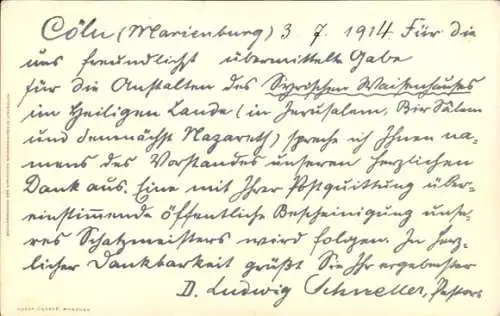 Cöln (Marienburg) 3. 7. 1914. Für die
uns freundlichst übermittelte Gabe
für die Anstalten des Syrischen Waisenhauses
im Heiligen Lande (in Jerusalem, Bir Salem
und demnächst Nazareth) spreche ich Ihnen na-
mens des Vorstandes unseren herzlichen
Dank aus. Eine mit Ihrer Postquittung über-
einstimmende öffentliche Bescheinigung unse-
res Schatzmeisters wird folgen. In herz-
licher Dankbarkeit grüßt Sie Ihr ergebenster
D. Ludwig Schneller, Pastor.